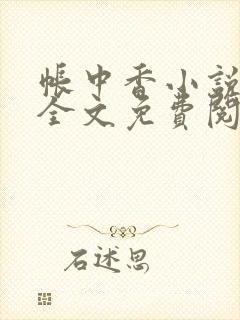 帳中香小説
全文免費閱
石述思